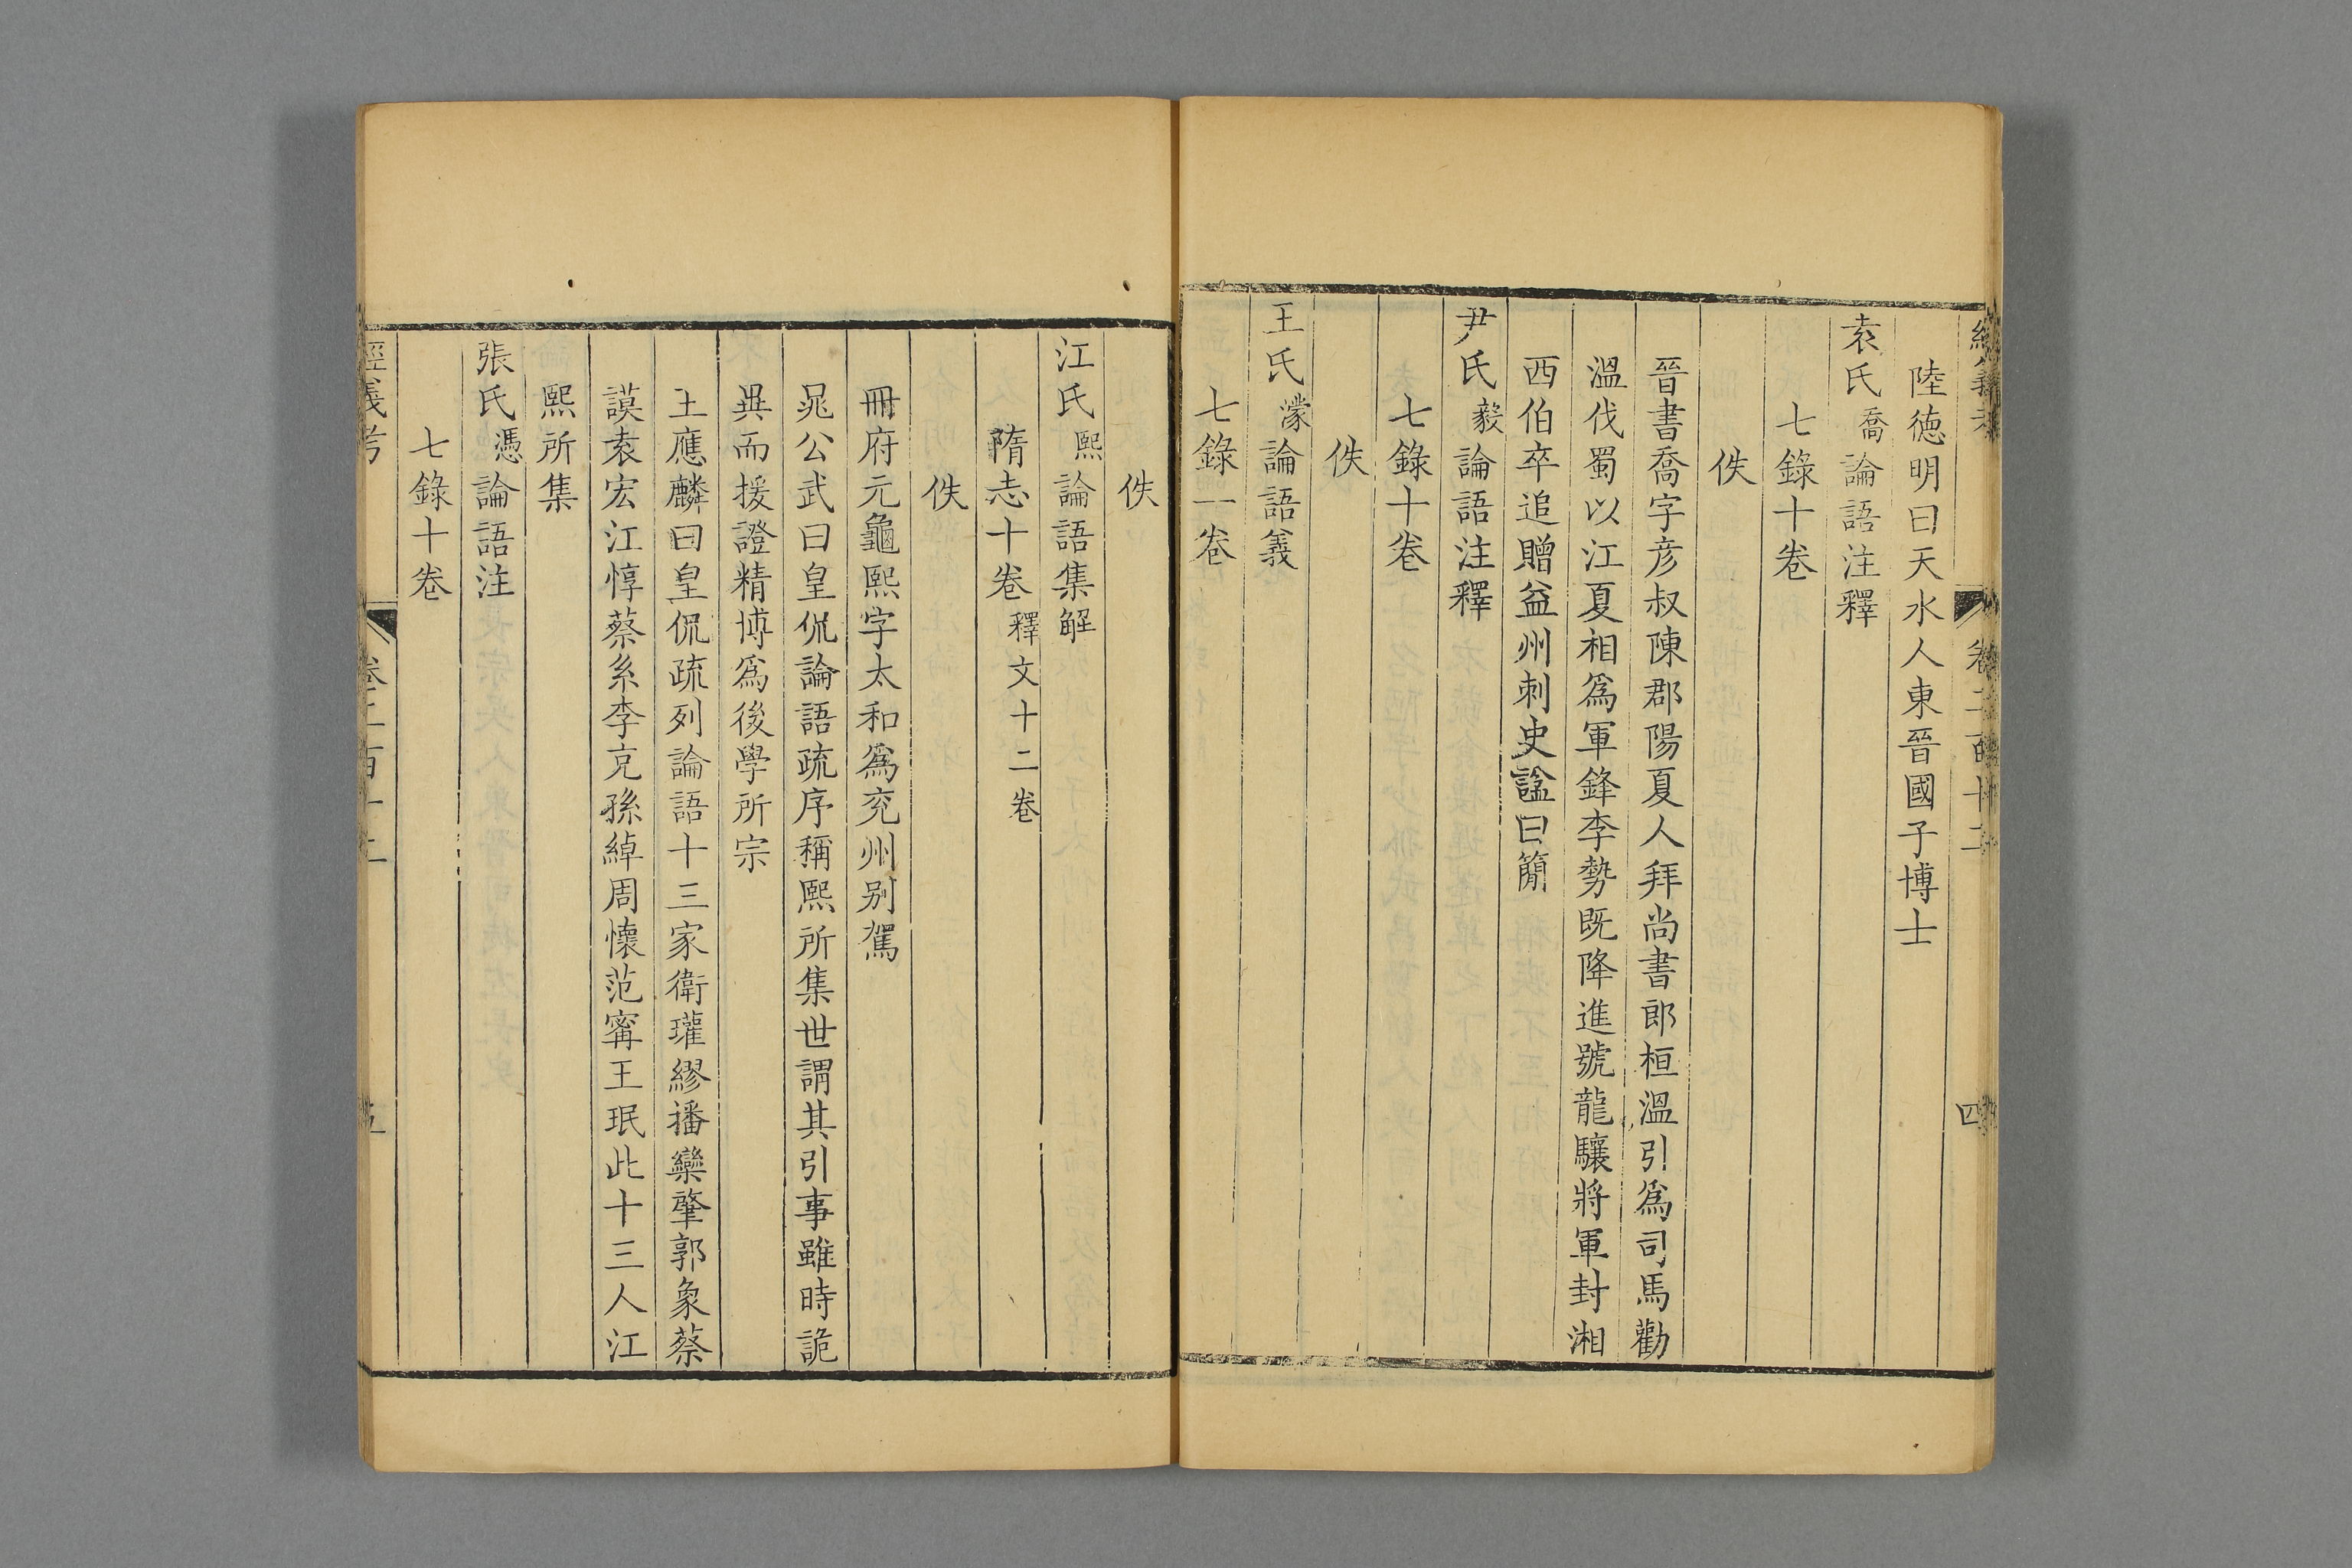 陸德明曰天水人東晉國子博士
袁氏喬論語注釋
七錄十卷
佚
晉書喬字彥叔陳郡陽夏人拜尚書郎桓溫引爲司馬勸
溫伐蜀以江夏相爲軍鋒李勢既降進號龍驤將軍封湘
西伯卒追贈益州刺史諡曰簡
尹氏毅論語注釋
七錄十卷
佚
王氏濛論語義
七錄一卷
佚
江氏熙論語集解
隋志十卷釋文十二卷
佚
冊府元龜熙字太和爲兖州别駕
晁公武曰皇侃論語疏序稱熙所集世謂其引事雖時詭
異而援證精博爲後學所宗
王應麟曰皇侃疏列論語十三家衛瓘繆播欒肇郭象蔡
謨袁宏江惇蔡系李充孫綽周懷范寗王珉此十三人江
熙所集
張氏憑論語注
七錄十卷
經義考
卷二百十二
五